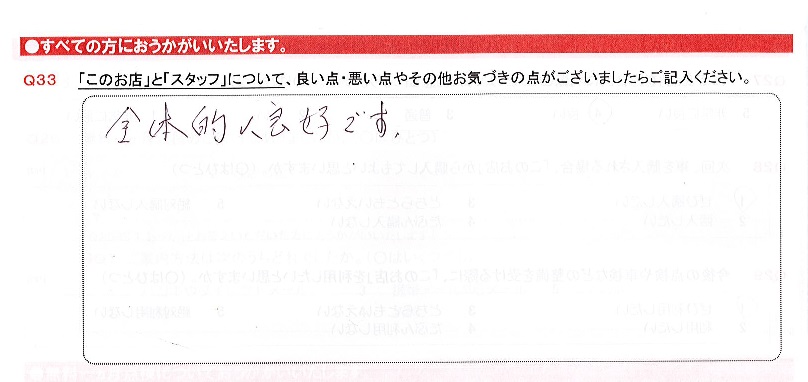 ●すべての方におうかがいいたします。
Q33 「このお店」と「スタッフ」について、良い点・悪い点やその他お気づきの点がございましたらご記入ください。
全体的に良好です。